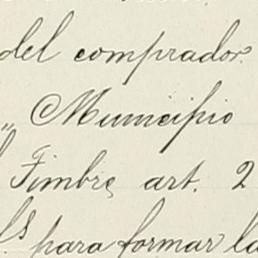 del comprador.
" Municipio
Timbre art. 2
para formar la